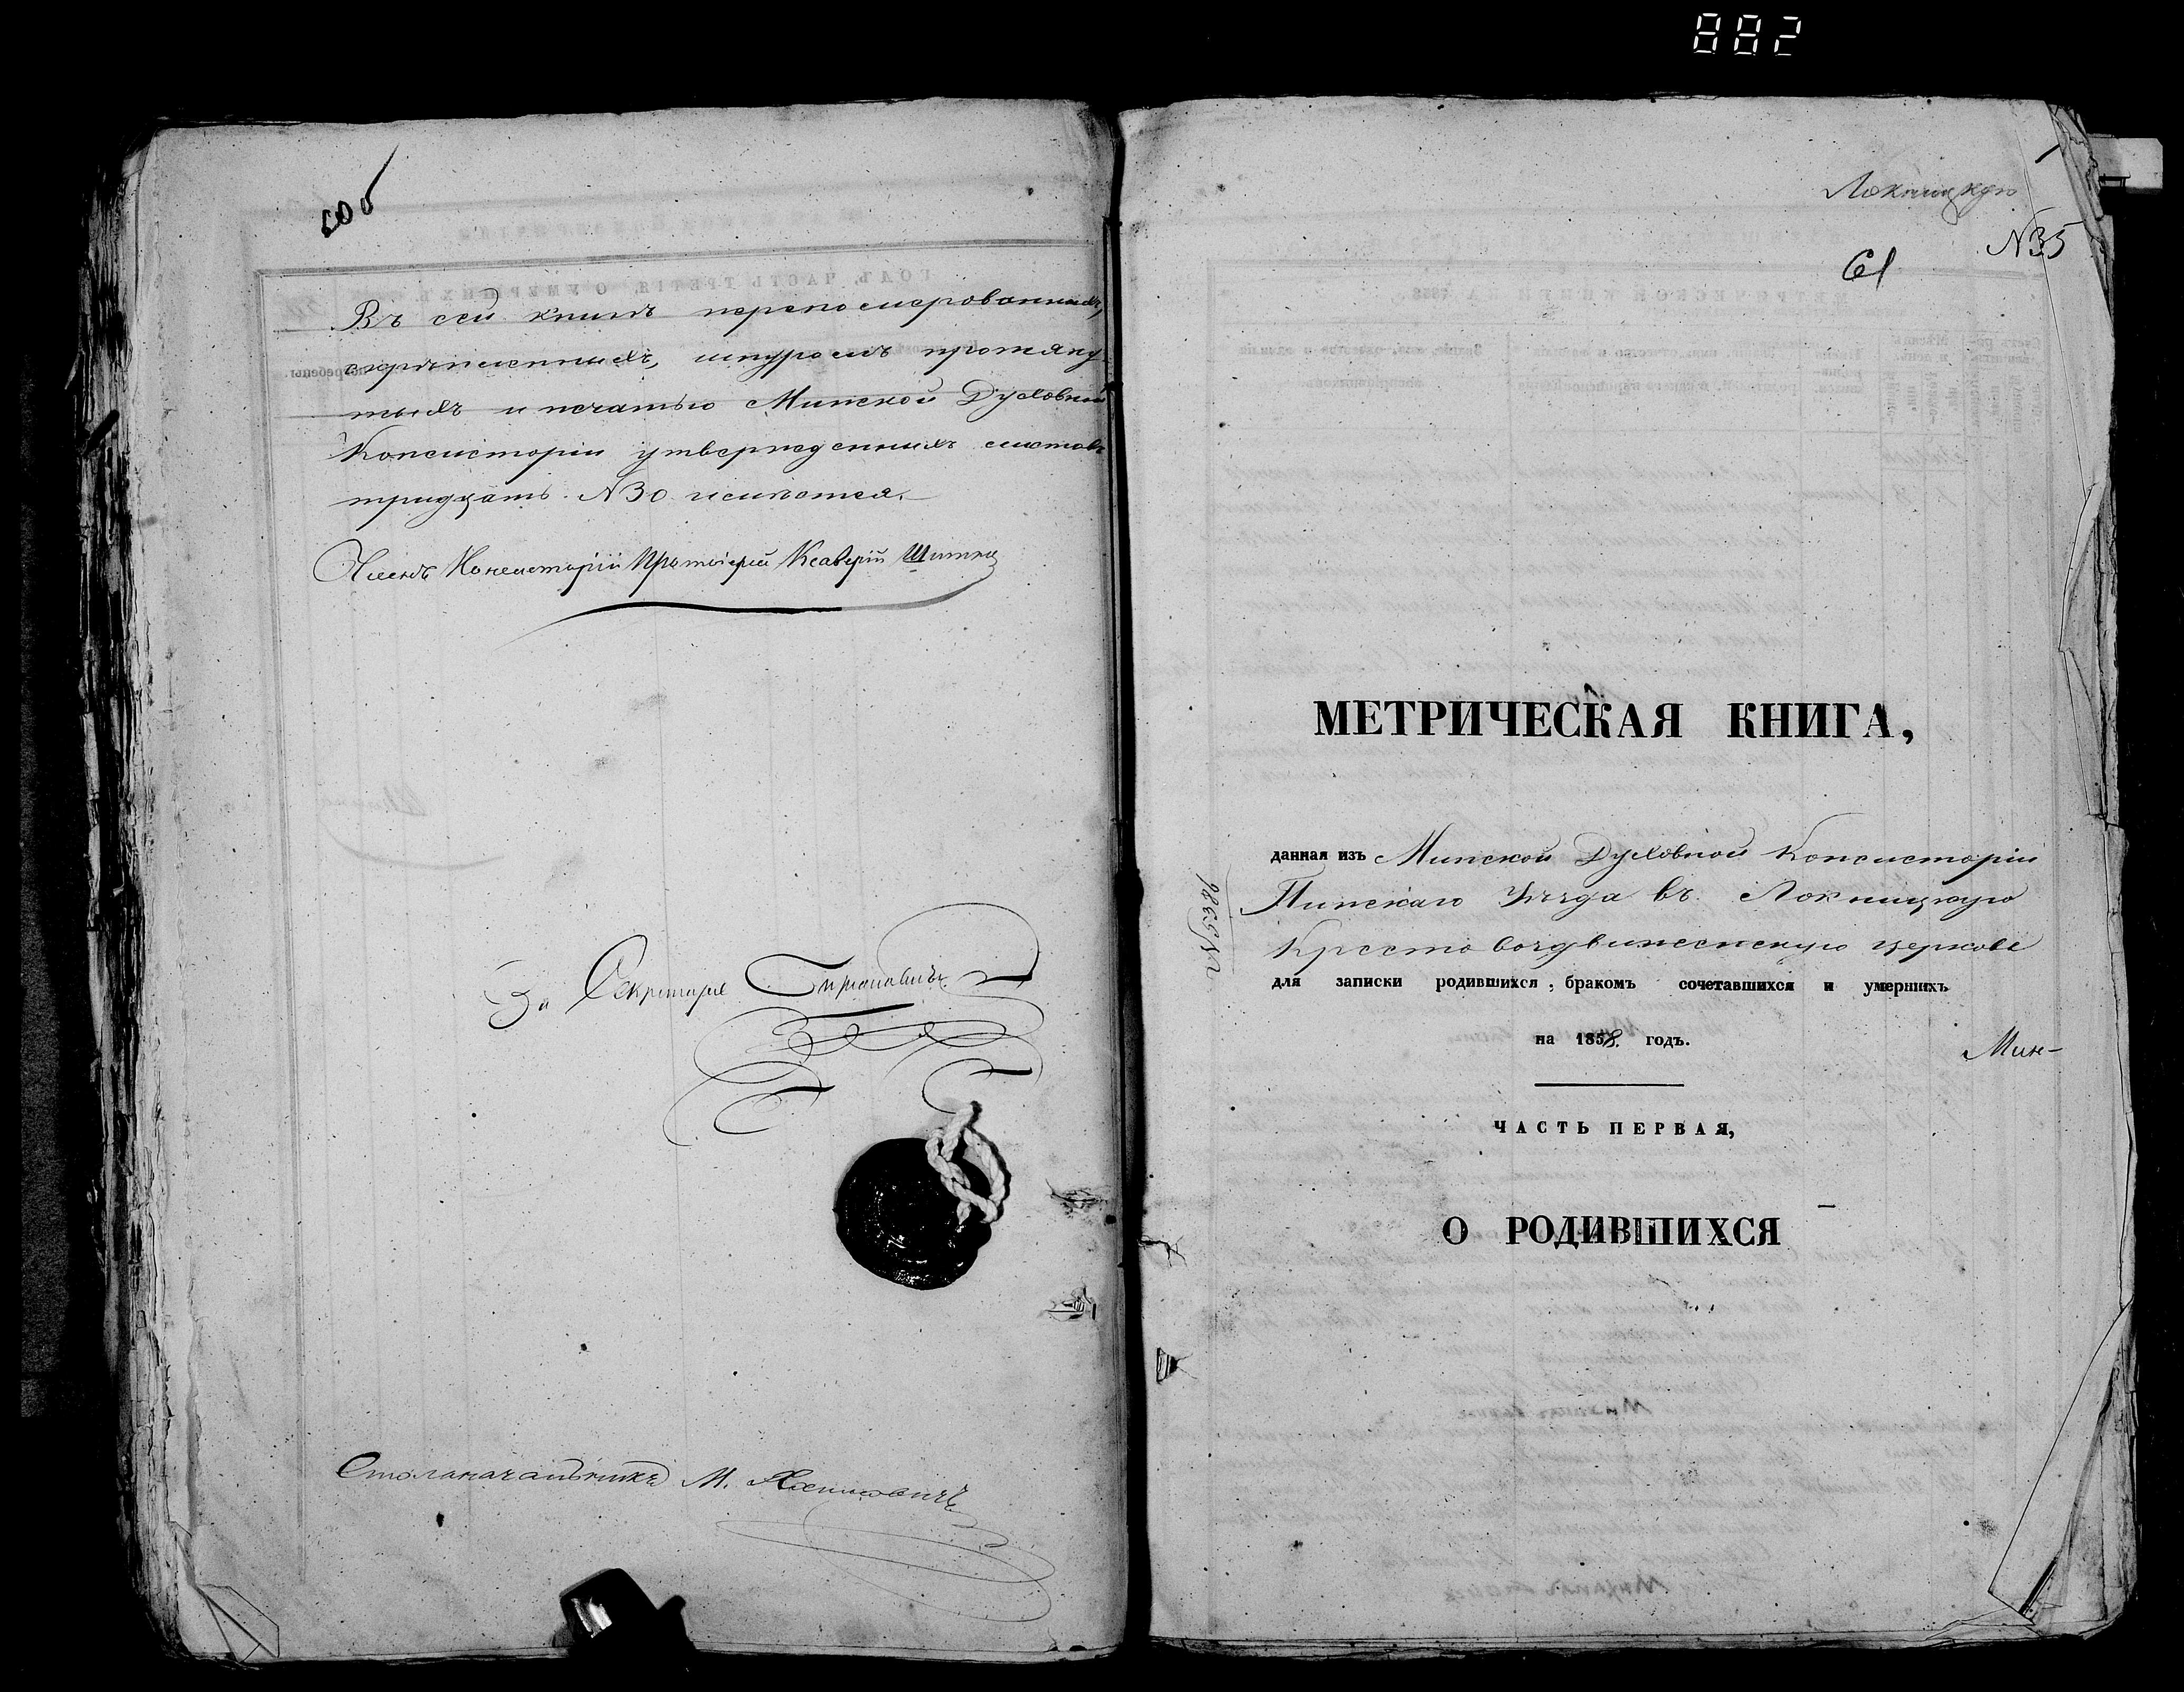 882
60б
Въ сей книгѣ перенумерованныхъ,
скрѣпленныхъ, шнуромъ протяну-
тыхъ и печатью Минской Духовной
Консисторіи утвержденныхъ листовъ
тридцать. №30. числится.
Членъ Консисторіи Протоіерей Ксаверій
За Секретаря
Столоначальникъ М.
Локницкую
№35
61
МЕТРИЧЕСКАЯ КНИГА,
данная изъ Минской Духовной Консисторіи
Пинскаго Уѣзда въ Локницкую
Кресто воздвиженскую церковь
для записки родившихся, бракомъ сочетавшихся и умершихъ
на 1858. годъ.
Мин-
ЧАСТЬ ПЕРВАЯ,
О РОДИВШИХСЯ